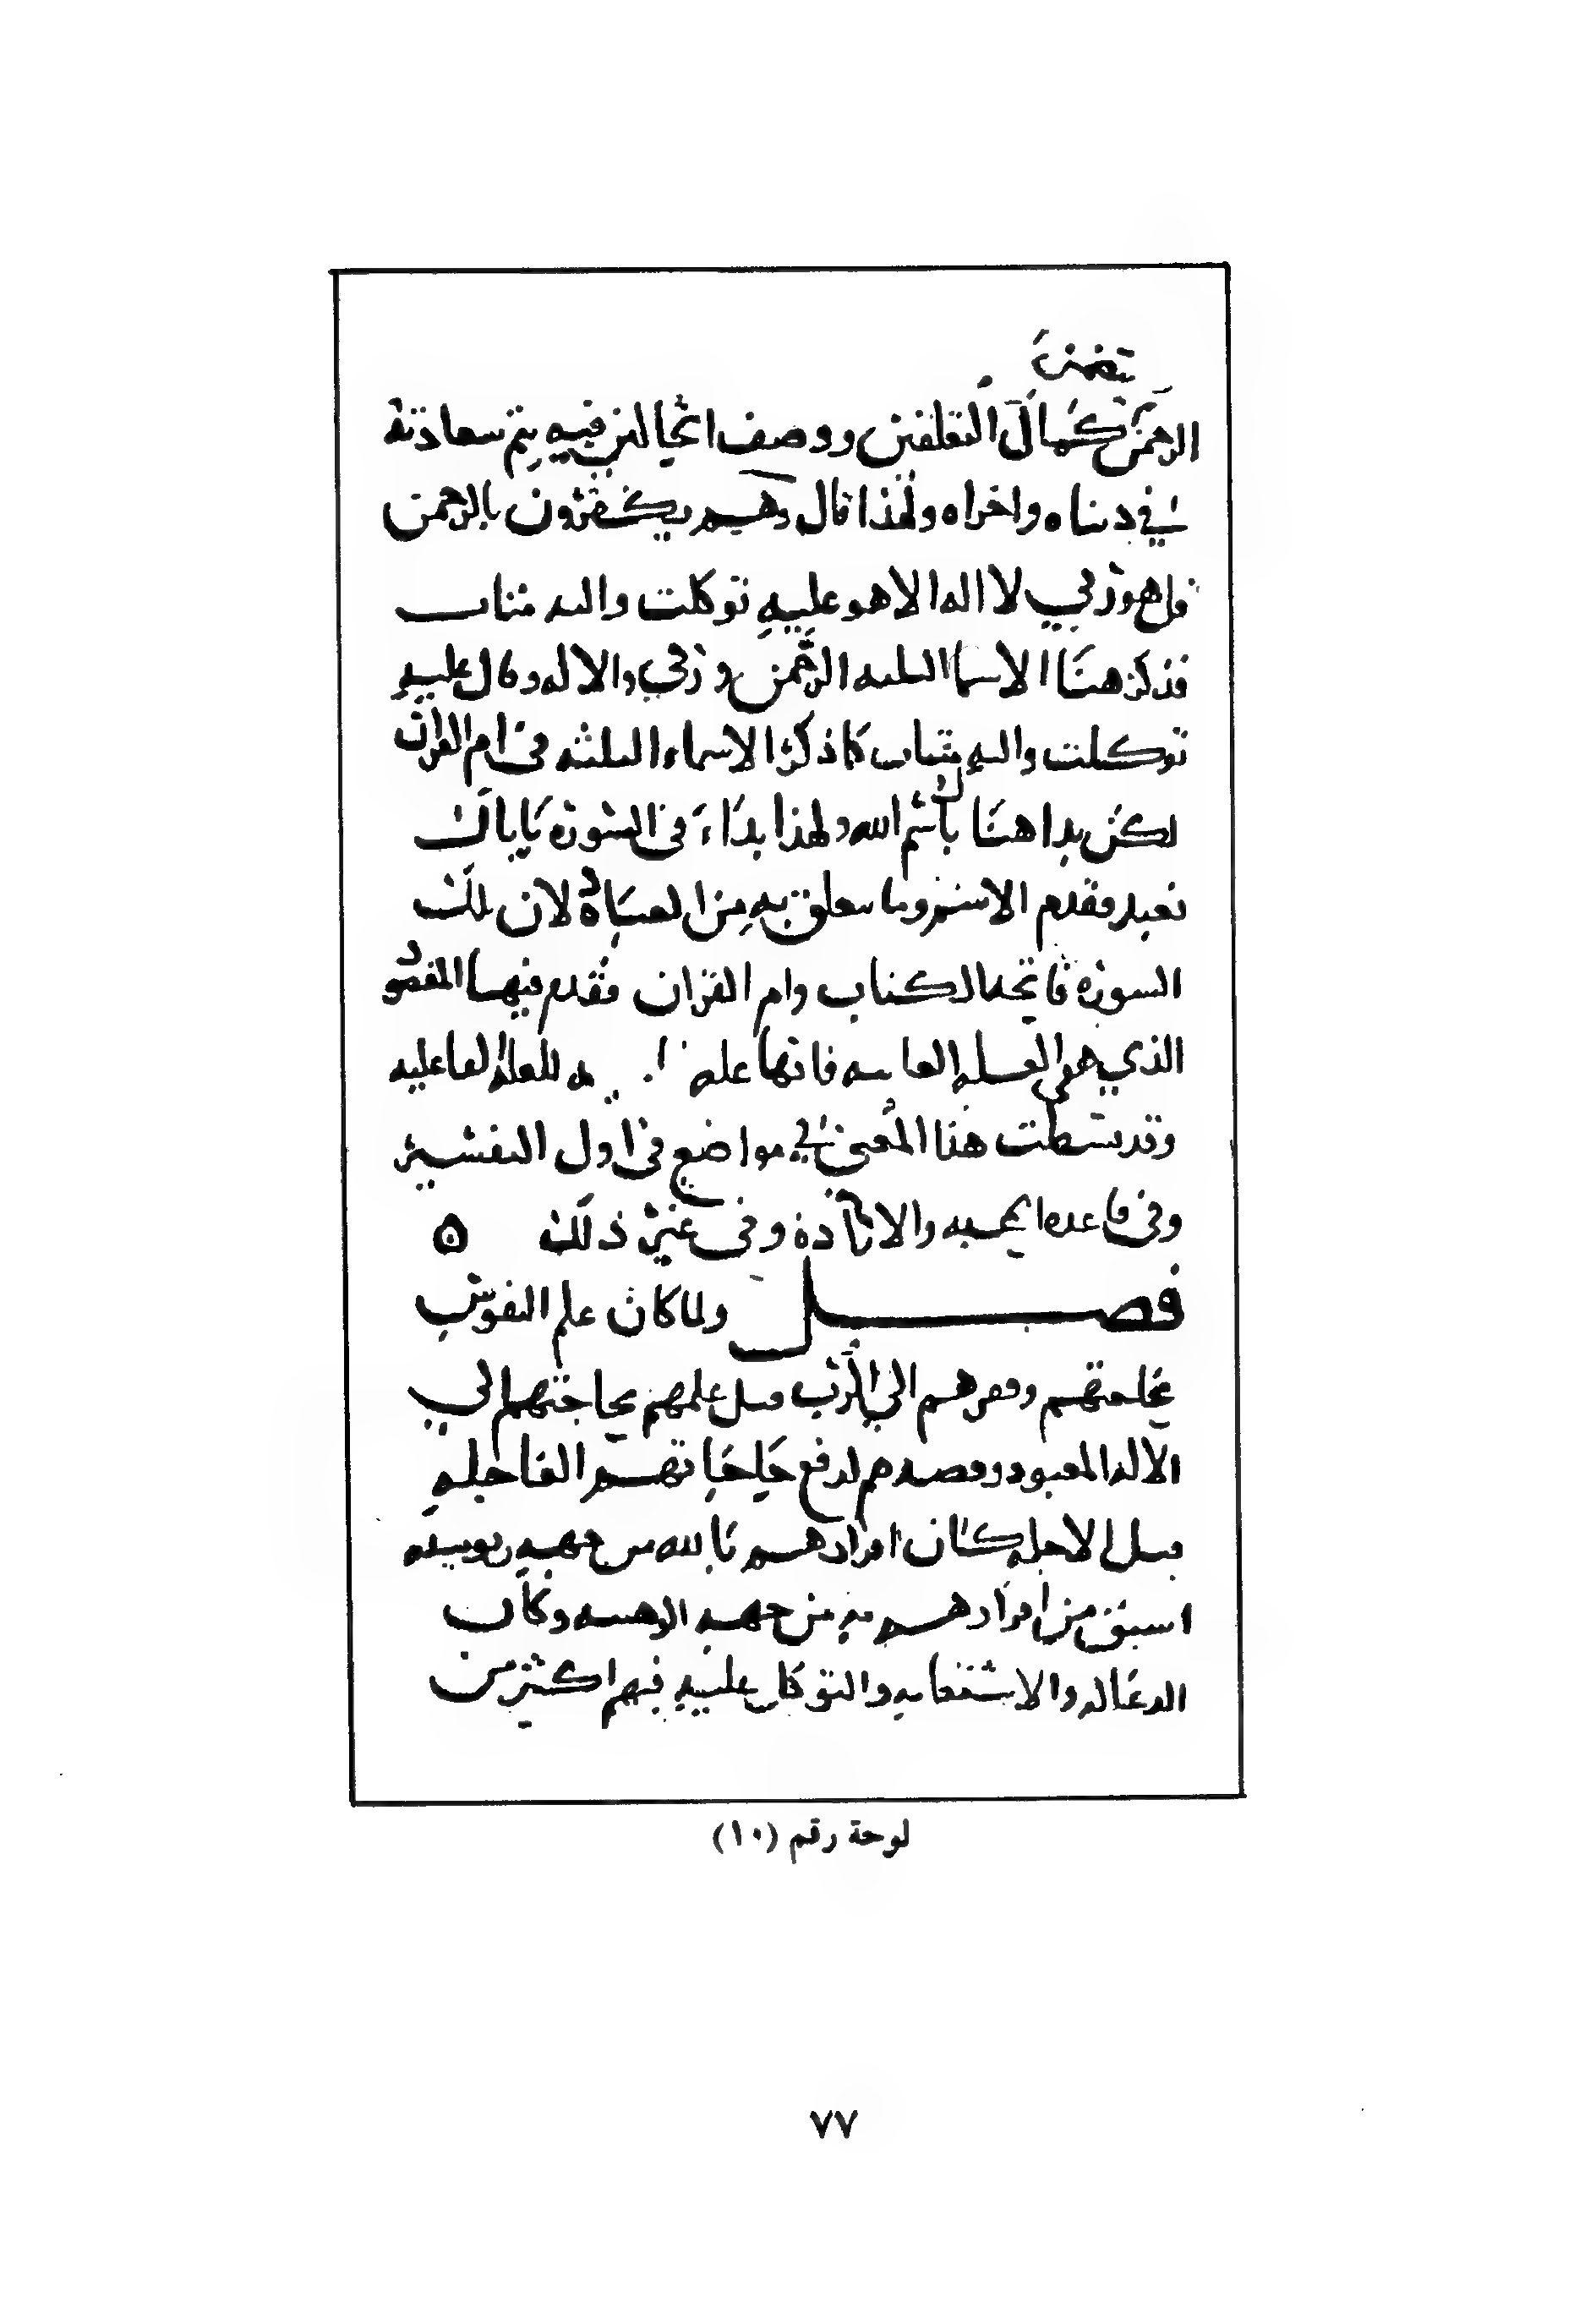 يتضمن
الرحمن كمال التعلقين ووصف الحالين فيه يتم سعادته
في دنياه واخراه ولهذا قال وهم يكفرون بالرحمن
قل هو ربي لا اله الا هو عليه توكلت واليه متاب
فذكر هنا الاسما الثلثه الرحمن وربي والاله وقال عليه
توكلت واليه متاب كما ذكر الاسماء الثلثه في ام القران
لكن بدا هناك باسم الله ولهذا بداء في السوره باياك
نعبد فقدم الاسم وما يتعلق به من العباده لان تلك
السوره فاتحه الكتاب وام القران فقدم فيها المقصود
الذي هو العله الغاييه فانها عله للعله الفاعليه
وقد بسطت هذا المعنى في مواضع في اول التفسير
وفي قاعده المحبه والاراده وفي غير ذلك ٥
فصل ولما كان علم النفوس
بحاجتهم وفقرهم الي الرب قبل علمهم بحاجتهم الي
الاله المعبود وقصدهم لدفع حاجاتهم العاجله
قبل الاجله كان اقرارهم بالله من جهه ربوبيته
اسبق من اقرارهم به من جهه الوهيته وكان
الدعا له والاستعانه والتوكل عليه فيهم اكثر من
لوحة رقم (١٠)
٧٧